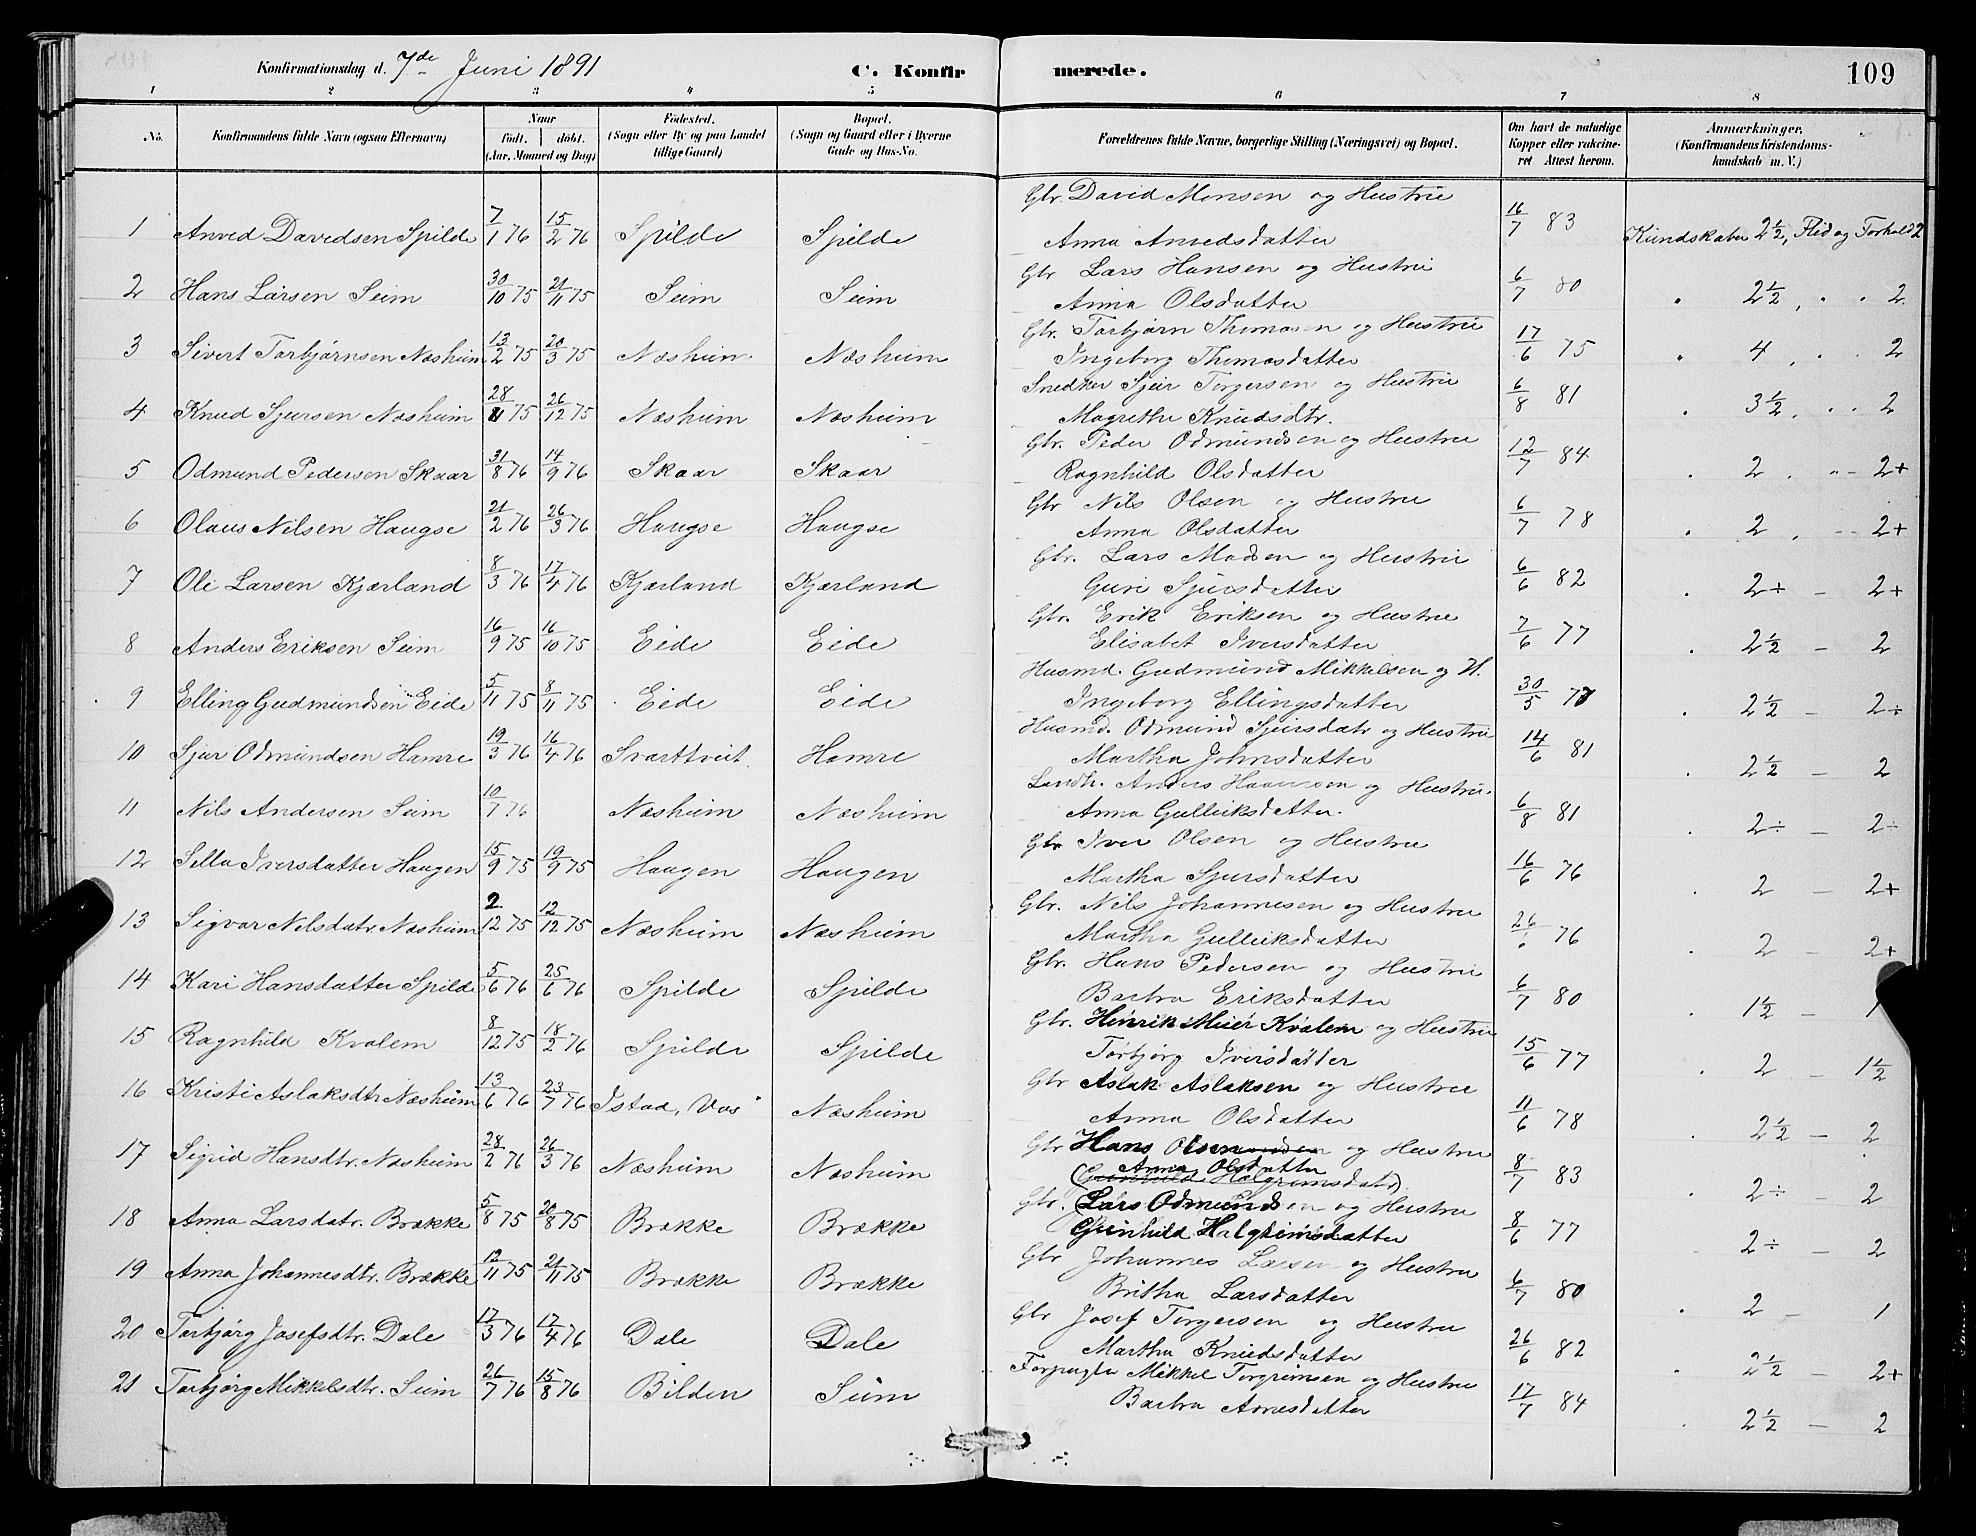 Konfirmationsdag d. 7de Juni 1891 C. Konfirmerede. 109
1 2 3 4 5 6 7 8
No. Konfirmandens fulde Navn (ogsaa Efternavn) Naar født. døbt. (Aar, Maaned og Dag) Fødested. (Sogn eller By og paa Landet tillige Gaard) Bopæl. (Sogn og Gaard eller i Byerne Gade og Hus-No. Forældrenes fulde Navne, borgerlige Stilling (Næringsvei) og Bopæl. Om havt de naturlige Kopper eller vakcineret Attest herom. Anmærkninger, (Konfirmandens Kristendomskundskab m. V.)
1 Anved Davidsen Spilde 7/1 76 15/2 76 Spilde Spilde Gbr. David Monsen og Hustrue Anna Anvedsdatter 16/7 83 Kundskaber 2½, Flid og Forhold 2
2 Hans Larsen Seim 30/10 75 21/11 75 Seim Seim Gbr Lars Hansen og Hustru Anna Olsdatter 6/7 80 " 2½, " " 2
3 Sivert Torbjørnsen Næsheim 13/2 75 20/3 75 Næsheim Næsheim Gbr. Torbjørn Thomasen og Hustrue Ingeborg Thomasdatter 17/6 75 " 4, " " 2
4 Knud Sjursen Næsheim 28/11 75 26/12 75 Næsheim Næsheim Snedker Sjur Torgersen og Hustrue Magrethe Knudsdtr. 6/8 81 " 3½, " " 2
5 Odmund Pedersen Skaar 31/8 76 14/9 76 Skaar Skaar Gbr. Peder Odmundsen og Hustrue Ragnhild Olsdatter 12/7 84 " 2 , " - 2+
6 Olaus Nilsen Haugse 21/2 76 26/3 76 Haugse Haugse Gbr Nils Olsen og Hustrue Anna Olsdatter 6/7 78 " 2 , - - 2+
7 Ole Larsen Kjærland 8/3 76 17/4 76 Kjærland Kjærland Gbr. Lars Madsen og Hustrue Guri Sjursdatter 6/6 82 " 2+ - 2+
8 Anders Eriksen Seim 16/9 75 16/10 75 Eide Eide Gbr. Erik Eriksen og Hustrue Elisabet Iversdatter 7/6 77 " 2½ - 2
9 Elling Gudmundsen Eide 5/11 75 8/11 75 Eide Eide Husmd. Gudmund Mikkelsen og H. Ingeborg Ellingsdatter 30/5 77 " 2½ - 2÷
10 Sjur Odmundsen Hamre 19/3 76 16/4 76 Svarttveit Hamre Husmd. Odmund Sjursdatr og Hustrue Martha Johnsdatter 14/6 81 " 2½ - 2
11 Nils Andersen Seim 10/7 76 Næsheim Næsheim Anders og Hustru. Anna Gulleiksdatter. 6/8 81 " 2÷ - 2÷
12 Sella Iversdatter Haugen 15/9 75 19/9 75 Haugen Haugen Gbr Iver Olsen og Hustrue Martha Sjursdatter 16/6 76 " 2 - 2+
13 Sigvar Nilsdatr Næsheim 2/12 75 12/12 75 Næsheim Næsheim Gbr. Nils Johannesen og Hustrue Martha Gulleiksdatter 26/6 76 " 2 - 2+
14 Kari Hansdatter Spilde 5/6 76 25/6 76 Spilde Spilde Gbr. Hans Pedersen og Hustrue Barbra Eriksdatter 6/7 80 " 1½ - 1
15 Ragnhild Kvalem 8/12 75 18/2 76 Spilde Spilde Gbr. Henrik Meier Kvalem og Hustrue Torbjørg Iversdatter 15/6 77 " 2 - 1½
16 Kristi Aslaksdtr Næsheim 13/6 76 23/7 76 Istad, Vos Næsheim Gbr Aslak Aslaksen og Hustrue Anna Olsdatter 11/6 78 " 2½ - 2
17 Sigrid Hansdtr. Næsheim 28/2 76 26/3 76 Næsheim Næsheim Gbr Hans Olsen og Hustrue Anna Olsdatter (Gunhild Halgrimsdatr) 8/7 83 " 2÷ - 2
18 Anna Larsdatr. Brække 5/8 75 20/8 75 Brække Brække Gbr. Lars Odmundsen og Hustrue Gunhild Halgrimsdatter 8/6 77 2÷ - 2
19 Anna Johannesdtr. Brække 12/11 75 21/11 75 Brække Brække Gbr Johannes Larsen og Hustrue Britha Larsdatter 6/7 80 " 2 - 1
20 Torbjørg Josefsdtr. Dale 17/3 76 17/4 76 Dale Dale Gbr Josef Torgersen og Hustrue Martha Knudsdatter 26/6 82 " 2½ - 2+
21 Torbjørg Mikkelsdtr. Seim 26/7 76 15/8 76 Bilden Seim Forpagter Mikkel Torgrimsen og Hustrue Barbra Arnesdatter 17/7 84 " 2½ - 2